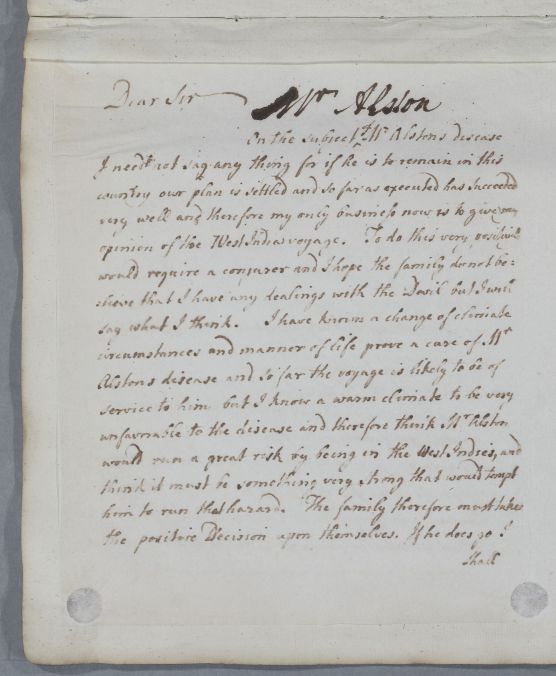 Dear Sir
Mr Alston
On the subject of Mr Alstons disease
I need not say any thing for if he is to remain in this
country our plan is settled and so far as executed has succeeded
very well and therefore my only business now is to give my
opinion of the West Indies voyage. To do this very positively
would require a conjurer and I hope the family do not be=
=lieve that I have any dealings with the Devil but I will
say what I think. I have known a change of climate
circumstances and manner of life prove a cure of Mr
Alstons disease and so far the voyage is likely to be of
service to him but I know a warm climate to be very
unfavorable to the disease and therefore think Mr Alston
would run a great risk by being in the West Indies, and
think it must be something very strong that would tempt
him to run that hazard. The family therefore must take
the positive Decision upon themselves. If he does go I
shall